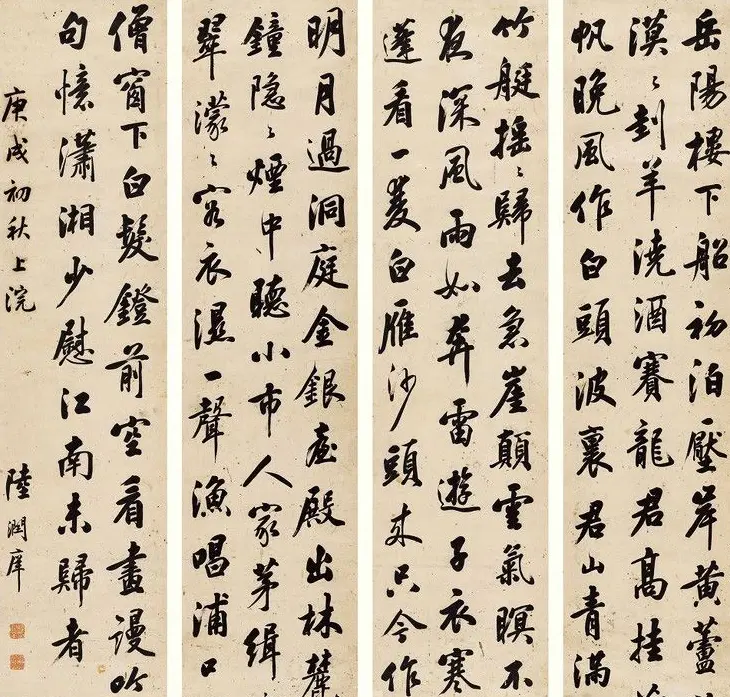 岳陽樓下船初泊壓岸黃蘆
漠〻刲羊澆酒賽龍君高挂
帆晚風作白頭波裏君山青滿
竹艇搖〻歸去急崖顛雲氣暝不
夜深風雨如奔雷遊子衣寒
蓬看一雙白雁沙頭來只今作
明月過洞庭金銀臺殿出林麓
鐘隱〻煙中聽小市人家茅緝
翠濛〻客衣濕一聲漁唱浦口
僧窗下白髮鐙前空看畫謾吟
句憶瀟湘少慰江南未歸者
庚戌初秋上浣
陸潤庠